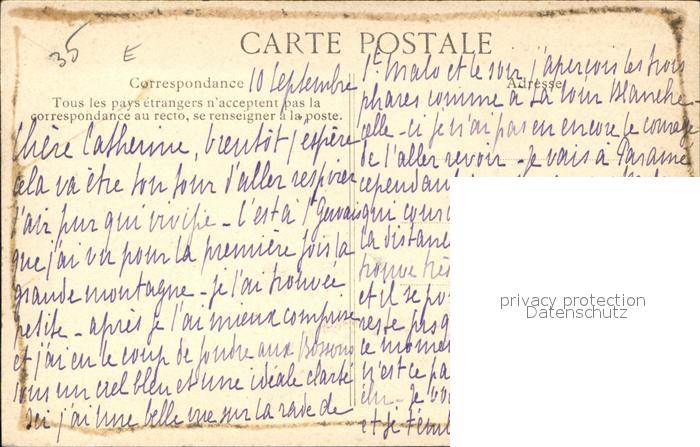 35 E
CARTE POSTALE
Correspondance
Adresse
Tous les pays étrangers n'acceptent pas la
correspondance au recto, se renseigner à la poste.
10 Septembre
Chère Catherine, bientôt j'espère
cela va être ton tour d'aller respirer
l'air pur qui vivifie - C'est à St Gervais
que j'ai vu pour la première fois la
grande montagne - je l'ai trouvée
petite - après je l'ai mieux comprise
et j'ai eu le coup de foudre aux Bossons
sous un ciel bleu et une idéale clarté
Ici j'ai une belle vue sur la rade de
St Malo et le soir j'aperçois les trois
phares comme à La Tour Blanche -
celle-ci je n'ai pas eu encore le courage
de l'aller revoir - je vais à Paramé
cependant
qui
la distance
trouve très
et il se
reste pas
ce moment
n'est ce pas
je
et
privacy protection
Datenschutz